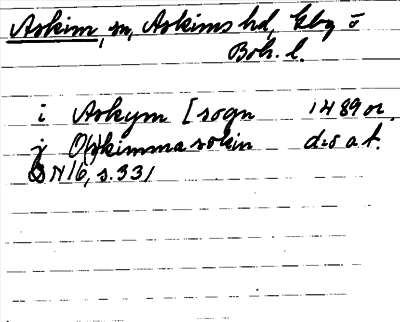 Askim, sn, Askims hd, Gbg o
Boh. l.
i Askym [sogn 1489 or.
j O(s)kimma sokin d:o a.f.
DN 16, s. 331